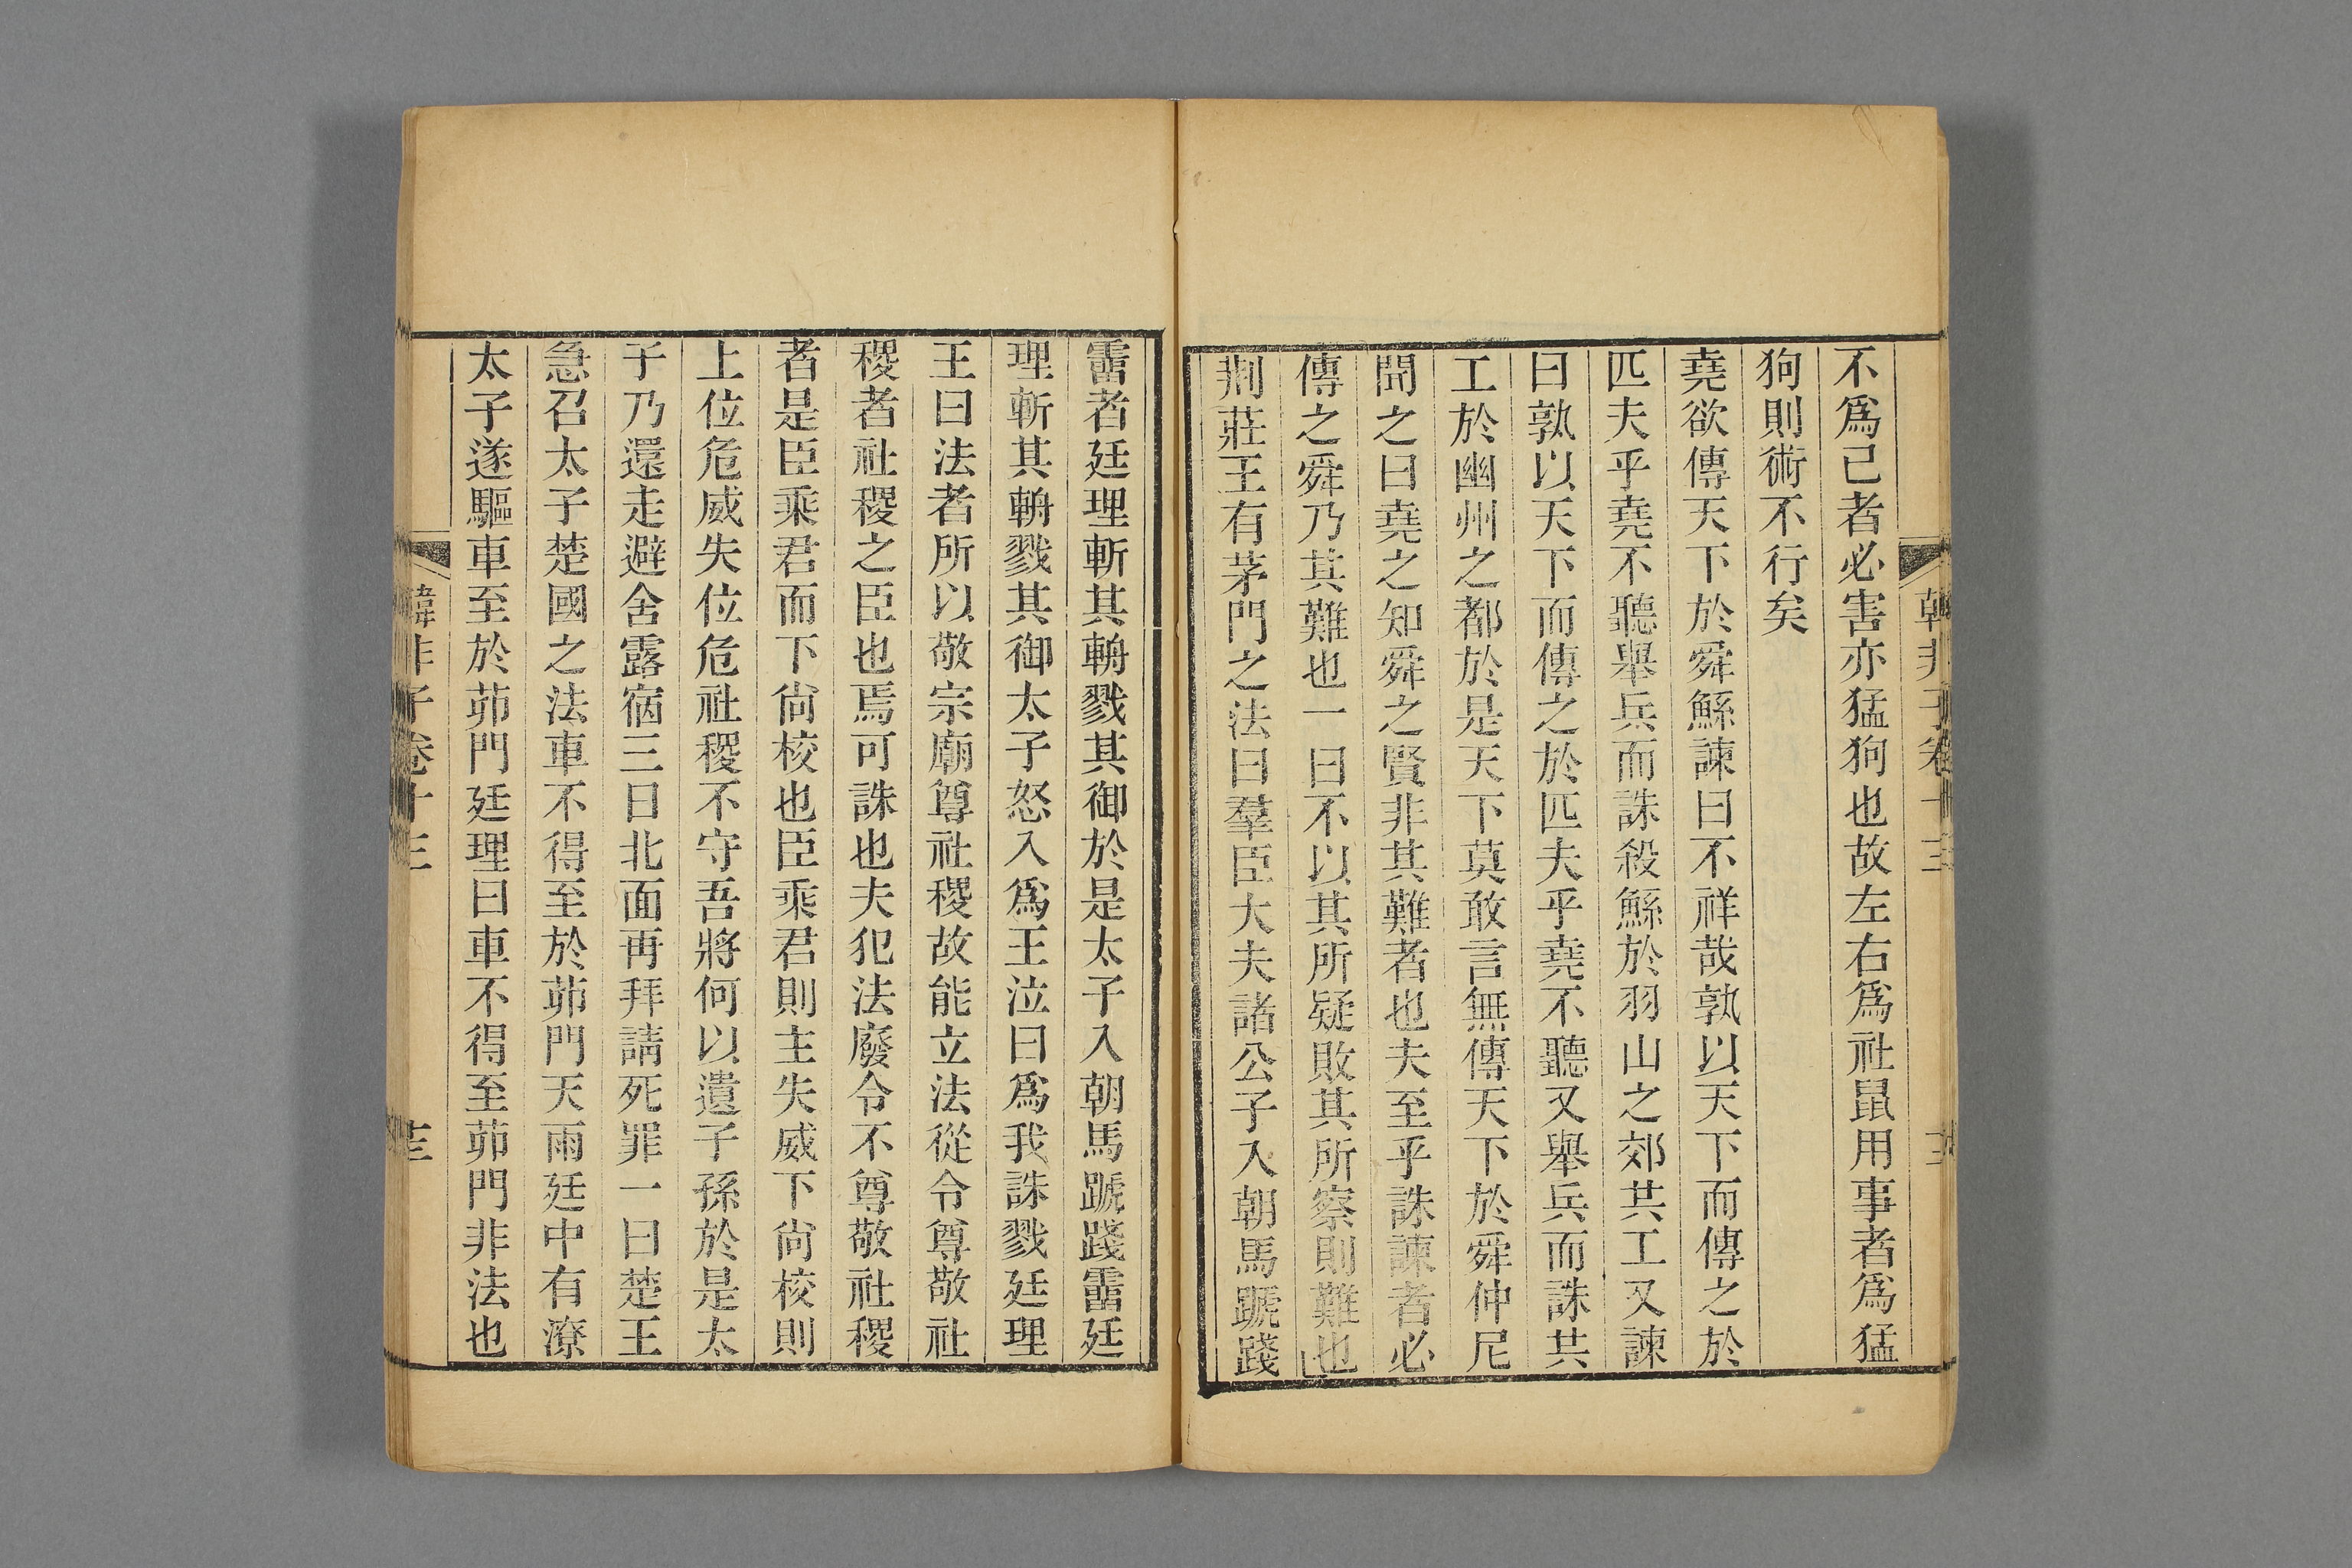 韓非子卷十三
不爲已者必害亦猛狗也故左右爲社鼠用事者爲猛
狗則術不行矣
堯欲傳天下於舜鯀諫曰不祥哉孰以天下而傳之於
匹夫乎堯不聽舉兵而誅殺鯀於羽山之郊共工又諫
曰孰以天下而傳之於匹夫乎堯不聽又舉兵而誅共
工於幽州之都於是天下莫敢言無傳天下於舜仲尼
聞之曰堯之知舜之賢非其難者也夫至乎誅諫者必
傳之舜乃其難也一曰不以其所疑敗其所察則難也
荆莊王有茅門之法曰羣臣大夫諸公子入朝馬蹏踐
霤者廷理斬其輈戮其御於是太子入朝馬蹏踐霤廷
理斬其輈戮其御太子怒入爲王泣曰爲我誅戮廷理
王曰法者所以敬宗廟尊社稷故能立法從令尊敬社
稷者社稷之臣也焉可誅也夫犯法廢令不尊敬社稷
者是臣乘君而下尙校也臣乘君則主失威下尙校則
上位危威失位危社稷不守吾將何以遺子孫於是太
子乃還走避舍露宿三日北面再拜請死罪一曰楚王
急召太子楚國之法車不得至於茆門天雨廷中有潦
太子遂驅車至於茆門廷理曰車不得至茆門非法也
韓非子卷十三